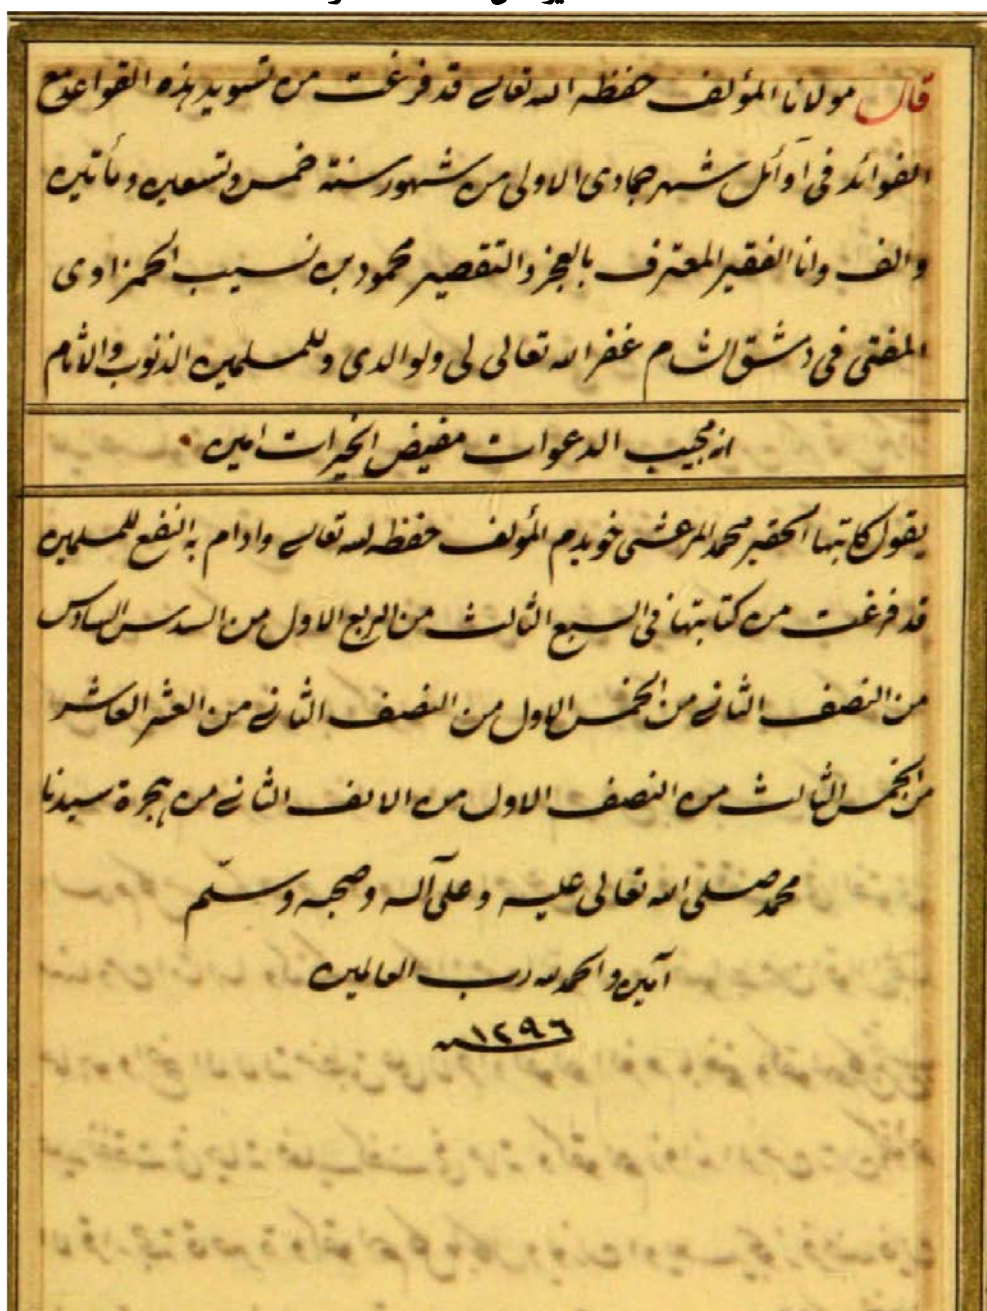 قال مولانا المؤلف حفظه الله تعالى قد فرغت من تسويد هذه القواعد مع
الفوائد فى آوائل شهر جمادى الاولى من شهور سنة خمس وتسعين ومأتين
والف وانا الفقير المعترف بالعجز والتقصير محمود بن نسيب الحمزاوى
المفتى فى دمشق الشام غفر الله تعالى لى ولوالدى وللمسلمين الذنوب والاثام
انه مجيب الدعوات مفيض الخيرات امين
يقول كاتبها الحقير محمد المرعشى خويدم المؤلف حفظه الله تعالى وادام به النفع للمسلمين
قد فرغت من كتابتها فى السبع الثالث من الربع الاول من السدس السادس
من النصف الثانى من الخمس الاول من النصف الثانى من العشر العاشر
من الخمس الثالث من النصف الاول من الالف الثانى من هجرة سيدنا
محمد صلى الله تعالى عليه وعلى آله وصحبه وسلم
آمين والحمد لله رب العالمين
١٢٩٦